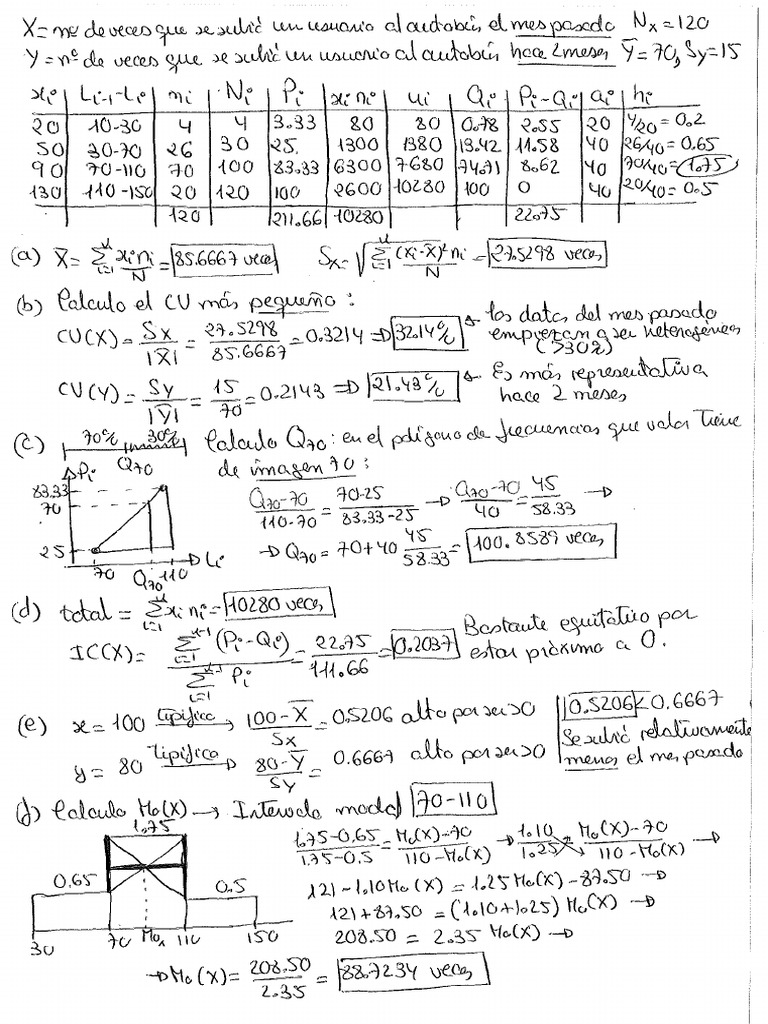 X = nº de veces que se subió un usuario al autobús el mes pasado Nx = 120
Y = nº de veces que se subió un usuario al autobús hace 2 meses Ȳ = 70, Sy = 15
xi | Li-1-Li | ni | Ni | Pi | xini | ui | Qi | Pi-Qi | ai | hi
20 | 10-30 | 4 | 4 | 3.33 | 80 | 80 | 0.78 | 2.55 | 20 | 4/20 = 0.2
50 | 30-70 | 26 | 30 | 25. | 1300 | 1380 | 13.42 | 11.58 | 40 | 26/40 = 0.65
90 | 70-110 | 70 | 100 | 83.33 | 6300 | 7680 | 74.71 | 8.62 | 40 | 70/40 = 1.75
130 | 110-150 | 20 | 120 | 100 | 2600 | 10280 | 100 | 0 | 40 | 20/40 = 0.5
120 | 211.66 | 10280 | 22.75
(a) X̄ = Σ xini/N = 85.6667 veces Sx = √(Σ (xi-x̄)² ni/N) = 27.5298 veces
(b) Calculo el CV más pequeño:
CV(X) = Sx/|X̄| = 27.5298/85.6667 = 0.3214 ⇒ 32.14% → los datos del mes pasado
empiezan a ser heterogéneos
(>30%)
CV(Y) = Sy/|Ȳ| = 15/70 = 0.2143 ⇒ 21.43% → Es más representativa
hace 2 meses
(c) 70% 30% Q70 Calculo Q70: en el polígono de frecuencias que valor tiene
de imagen 70:
Pi 83.33 70 25 70 Q70 110 Li
(Q70-70)/(110-70) = (70-25)/(83.33-25) → (Q70-70)/40 = 45/58.33 →
→ Q70 = 70+40 45/58.33 = 100.8589 veces
(d) total = Σ xi ni = 10280 veces
IC(X) = Σ(Pi-Qi)/ΣPi = 22.75/111.66 = 0.2037 Bastante equitativo por
estar próximo a 0.
(e) x = 100 tipifico → (100-X̄)/Sx = 0.5206 alto por ser >0 0.5206 < 0.6667
y = 80 Tipifico → (80-Ȳ)/Sy = 0.6667 alto por ser >0 Se subió relativamente
menos el mes pasado
(f) Calculo Mo(X) → Intervalo modal 70-110
1.75 0.65 0.5 30 70 Mox 110 150
(1.75-0.65)/(1.75-0.5) = (Mo(X)-70)/(110-Mo(X)) → 1.10/1.25 = (Mo(X)-70)/(110-Mo(X)) →
121-1.10Mo(X) = 1.25Mo(X)-87.50 →
121+87.50 = (1.10+1.25) Mo(X) →
208.50 = 2.35 Mo(X) →
→ Mo(X) = 208.50/2.35 = 88.7234 veces